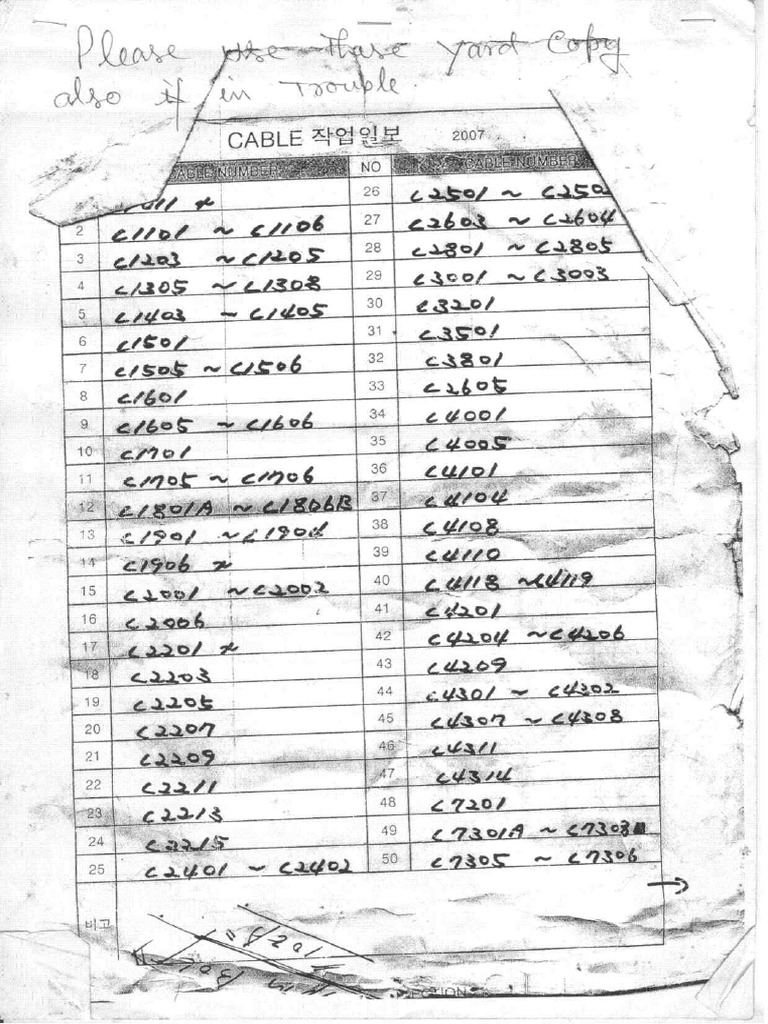 Please use these yard copy
also if in Trouble
CABLE 작업일보 2007
CABLE NUMBER NO CABLE NUMBER
26 C2501 ~
2 C1101 ~ C1106 27 C2603 ~ C2604
3 C1203 ~ C1205 28 C2801 ~ C2805
4 C1305 ~ C1308 29 C3001 ~ C3003
5 C1403 ~ C1405 30 C3201
6 C1501 31 C3501
7 C1505 ~ C1506 32 C3801
8 C1601 33 C2605
9 C1605 ~ C1606 34 C4001
10 C1701 35 C4005
11 C1705 ~ C1706 36 C4101
12 C1801A ~ C1806B 37 C4104
13 C1901 ~ 38 C4108
14 C1906 39 C4110
15 C2001 ~ C2002 40 C4118 ~ C4119
16 C2006 41 C4201
17 C2201 42 C4204 ~ C4206
18 C2203 43 C4209
19 C2205 44 C4301 ~ C4302
20 C2207 45 C4307 ~ C4308
21 C2209 46 C4311
22 C2211 47 C4314
23 C2213 48 C7201
24 C2215 49 C7301A ~
25 C2401 ~ C2402 50 C7305 ~ C7306
비고